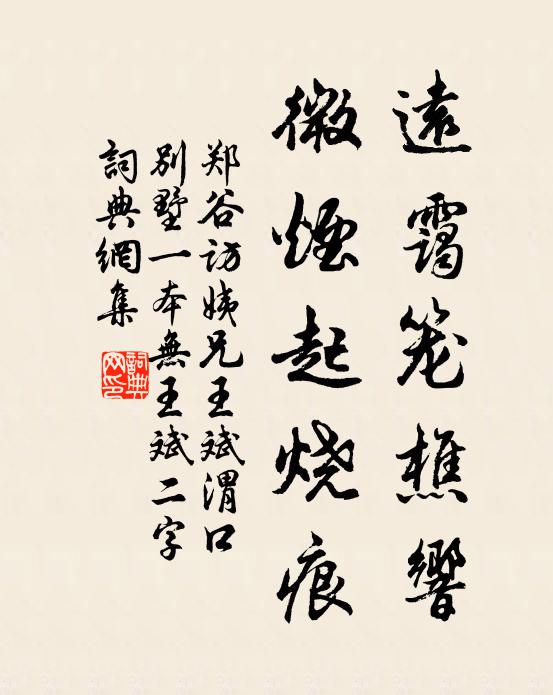 遠靄笼樵響
微煙起烧痕
郑谷访姨兄王斌渭口
别墅一本無王斌二字
詞典網集
詞典網印